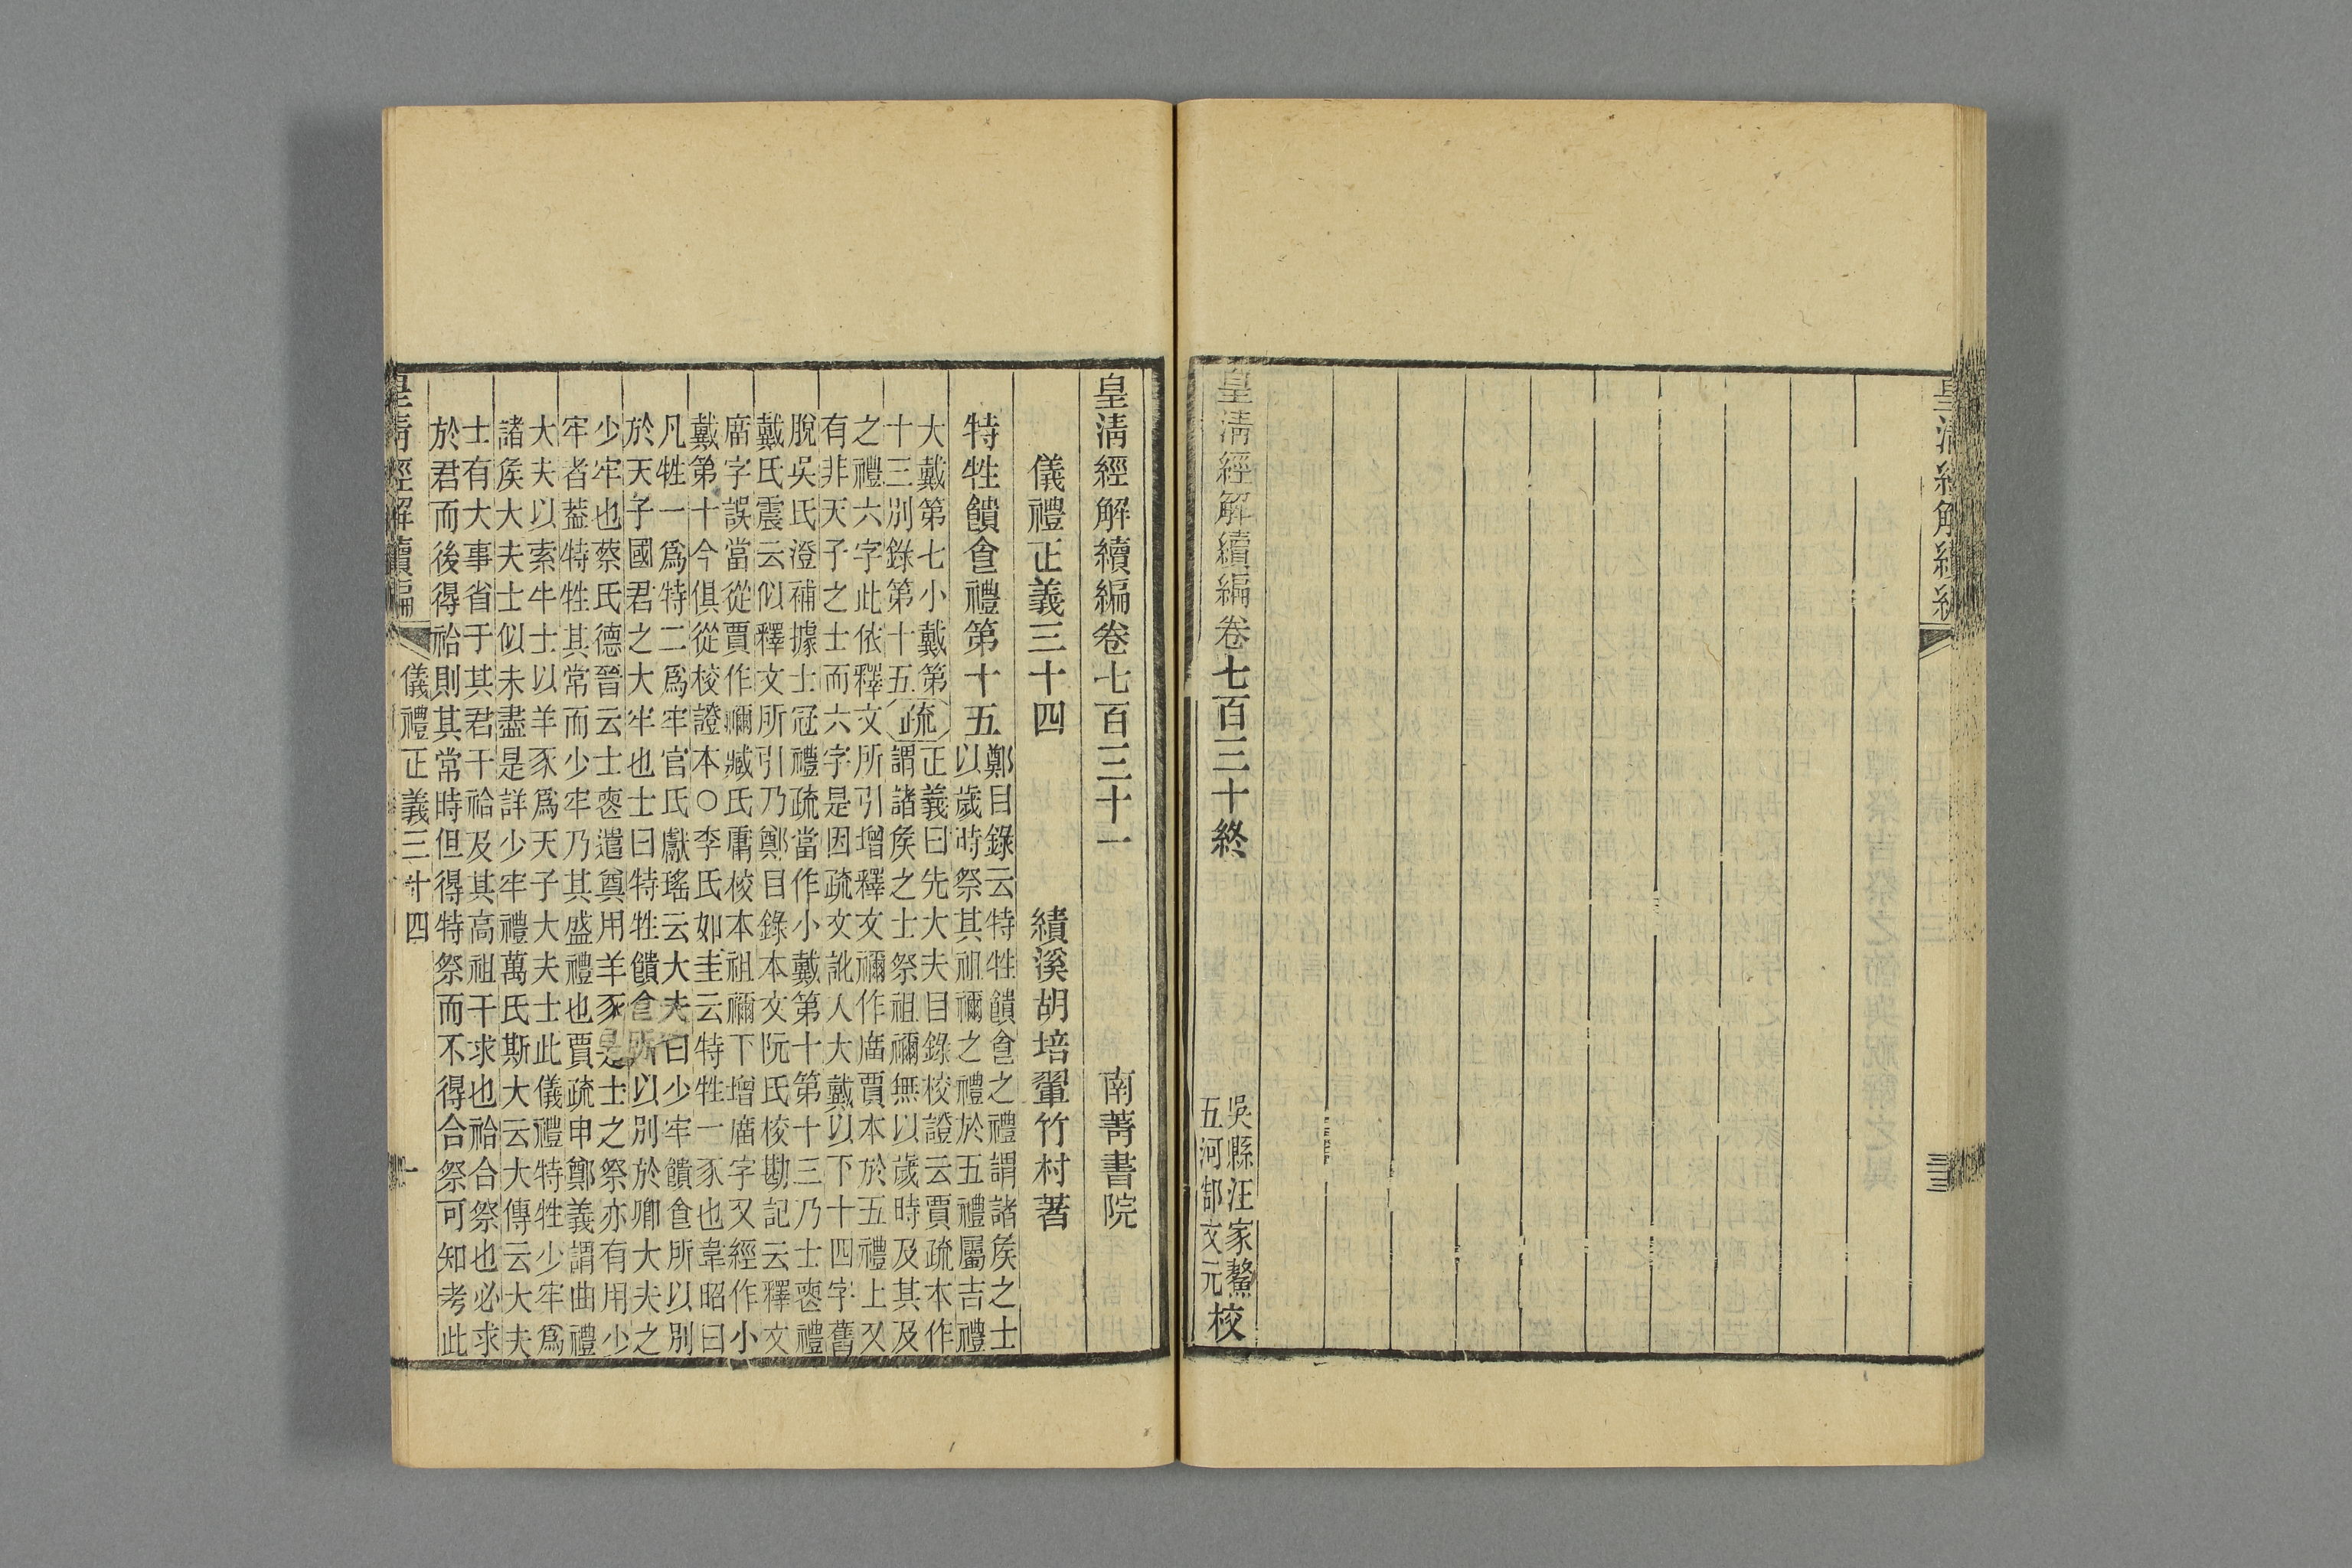 皇清經解續編
三
皇清經解續編卷七百三十終
吳縣汪家鰲
五河郜文元
校
皇清經解續編卷七百三十一 南菁書院
儀禮正義三十四 績溪胡培翬竹村著
特牲饋食禮第十五
鄭目錄云特牲饋食之禮謂諸矦之士
以歲時祭其祖禰之禮於五禮屬吉禮
大戴第七小戴第
十三別錄第十五
疏
正義曰先大夫目錄校證云賈疏本作
謂諸矦之士祭祖禰無以歲時及其及
之禮六字此依釋文所引增釋文禰作廣賈本於五禮上又
有非天子之士而六字是因疏文訛人大戴以下十四字舊
脫吳氏澄補據士冠禮疏當作小戴第十第十三乃士喪禮
戴氏震云似釋文所引乃鄭目錄本文阮氏校勘記云釋文
廣字誤當從賈作禰臧氏庸校本祖禰下增廣字又經作小
戴第十今俱從校證本○李氏如圭云特牲一豕也韋昭曰
凡牲一爲特二爲牢官氏獻瑤云大夫曰少牢饋食所以別
於天子國君之大牢也士曰特牲饋食所以別於卿大夫之
少牢也蔡氏德晉云士喪遣奠用羊豕是士之祭亦有用少
牢者葢特牲其常而少牢乃其盛禮也賈疏申鄭義謂曲禮
大夫以索牛士以羊豕爲天子大夫士此儀禮特牲少牢爲
諸矦大夫士似未盡是詳少牢禮萬氏斯大云大傳云大夫
士有大事省于其君干祫及其高祖干求也祫合祭也必求
於君而後得祫則其常時但得特祭而不得合祭可知考此
皇清經解續編 儀禮正義三十四 一